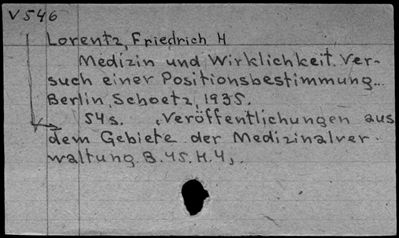 V 546
Lorentz, Friedrich H
Medizin und Wirklichkeit. Ver-
such einer Positionsbestimmung...
Berlin, Schoetz, 1935.
54s. (Veröffentlichungen aus
dem Gebiete der Medizinalver-
waltung. B. 45. H. 4).